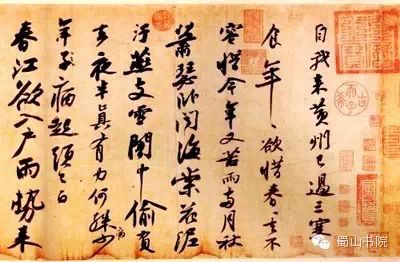 自我来黄州已过三寒
食年〻欲惜春春去不
容惜今年又苦雨两月秋
萧瑟卧闻海棠花泥
汙燕支雪闇中偷负
去夜半真有力何殊少
年子病起须已白
春江欲入户雨势来
蜀山书院